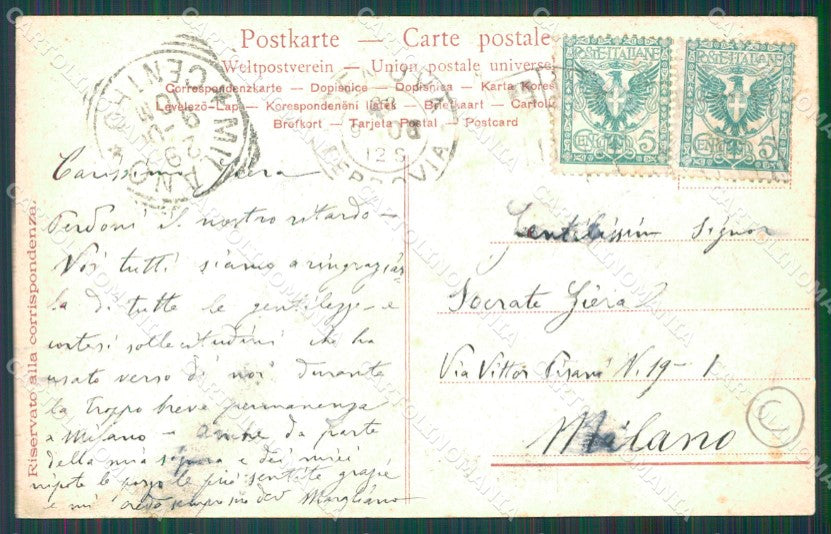 Postkarte — Carte postale
Weltpostverein — Union postale universe
Correspondenzkarte — Dopisnice — Dopisnica — Karta Kores
Levelező-Lap — Korespondenční lístek — Briefkaart — Cartoli
Brefkort — Tarjeta Postal — Postcard
POSTE ITALIANE
CENT. 5
POSTE ITALIANE
CENT. 5
MILANO
CENTRO
FERROVIA
Riservato alla corrispondenza.
Carissimo Giera
Perdoni il nostro ritardo —
Noi tutti siamo a ringraziar
la di tutte le gentilezze e
cortesi sollecitudini che ha
usato verso di noi durante
la troppo breve permanenza
a Milano — anche da parte
della mia signora e dei miei
nipote le porgo le più sentite grazie
e mi creda sempre suo dev Margliano
Gentilissim Signor
Socrate Giera
Via Vittor Pisani N. 19 - 1
Milano
C
CARTOLINOMANIA